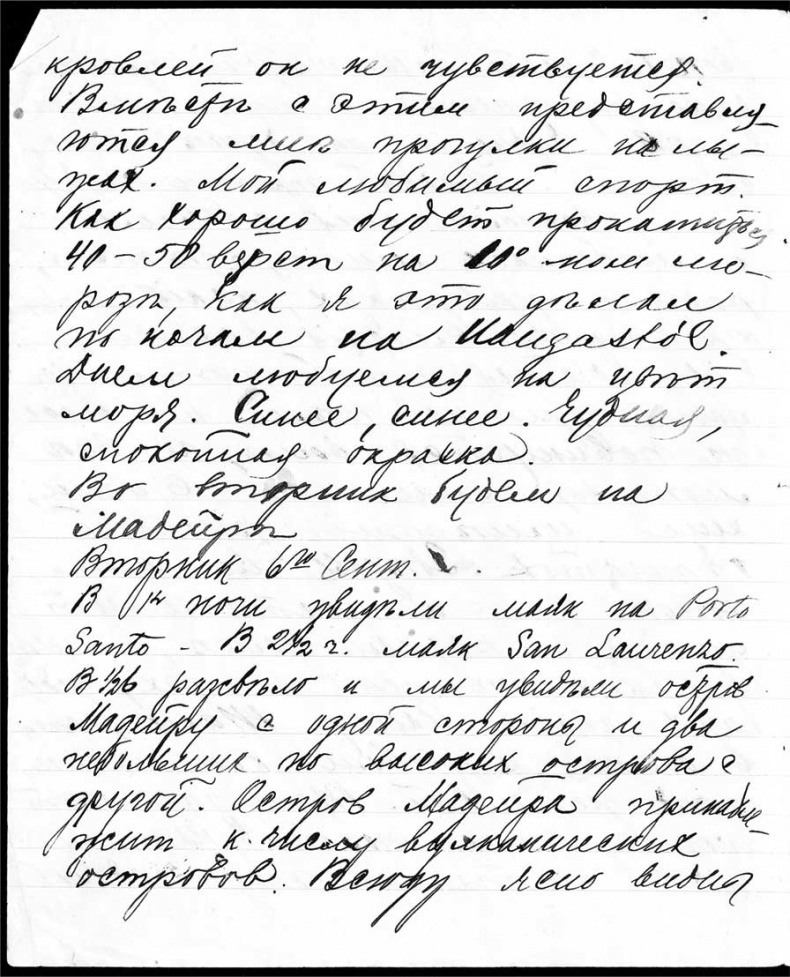 кровлей он не чувствуется.
Вместѣ с этим представля-
ются мнѣ прогулки на лы-
жах. Мой любимый спорт.
Как хорошо будет прокатиться
40–50 верст на 10° мом мо-
розѣ, как я это дѣлал
по ночам на Haugastöl.
Днем любуемся на цвѣт
моря. Синее, синее. Чудная,
спокойная окраска.
Во вторник будем на
Мадейрѣ
Вторник 6го Сент.
В 12 ночи увидѣли маяк на Porto
Santo – В 2½ ч. маяк San Laurenzo.
В ½6 разсвѣло и мы увидѣли остров
Мадейру с одной стороны и два
небольших но высоких острова с
другой. Остров Мадейра принадле-
жит к числу вулканических
островов. Всюду ясно видны